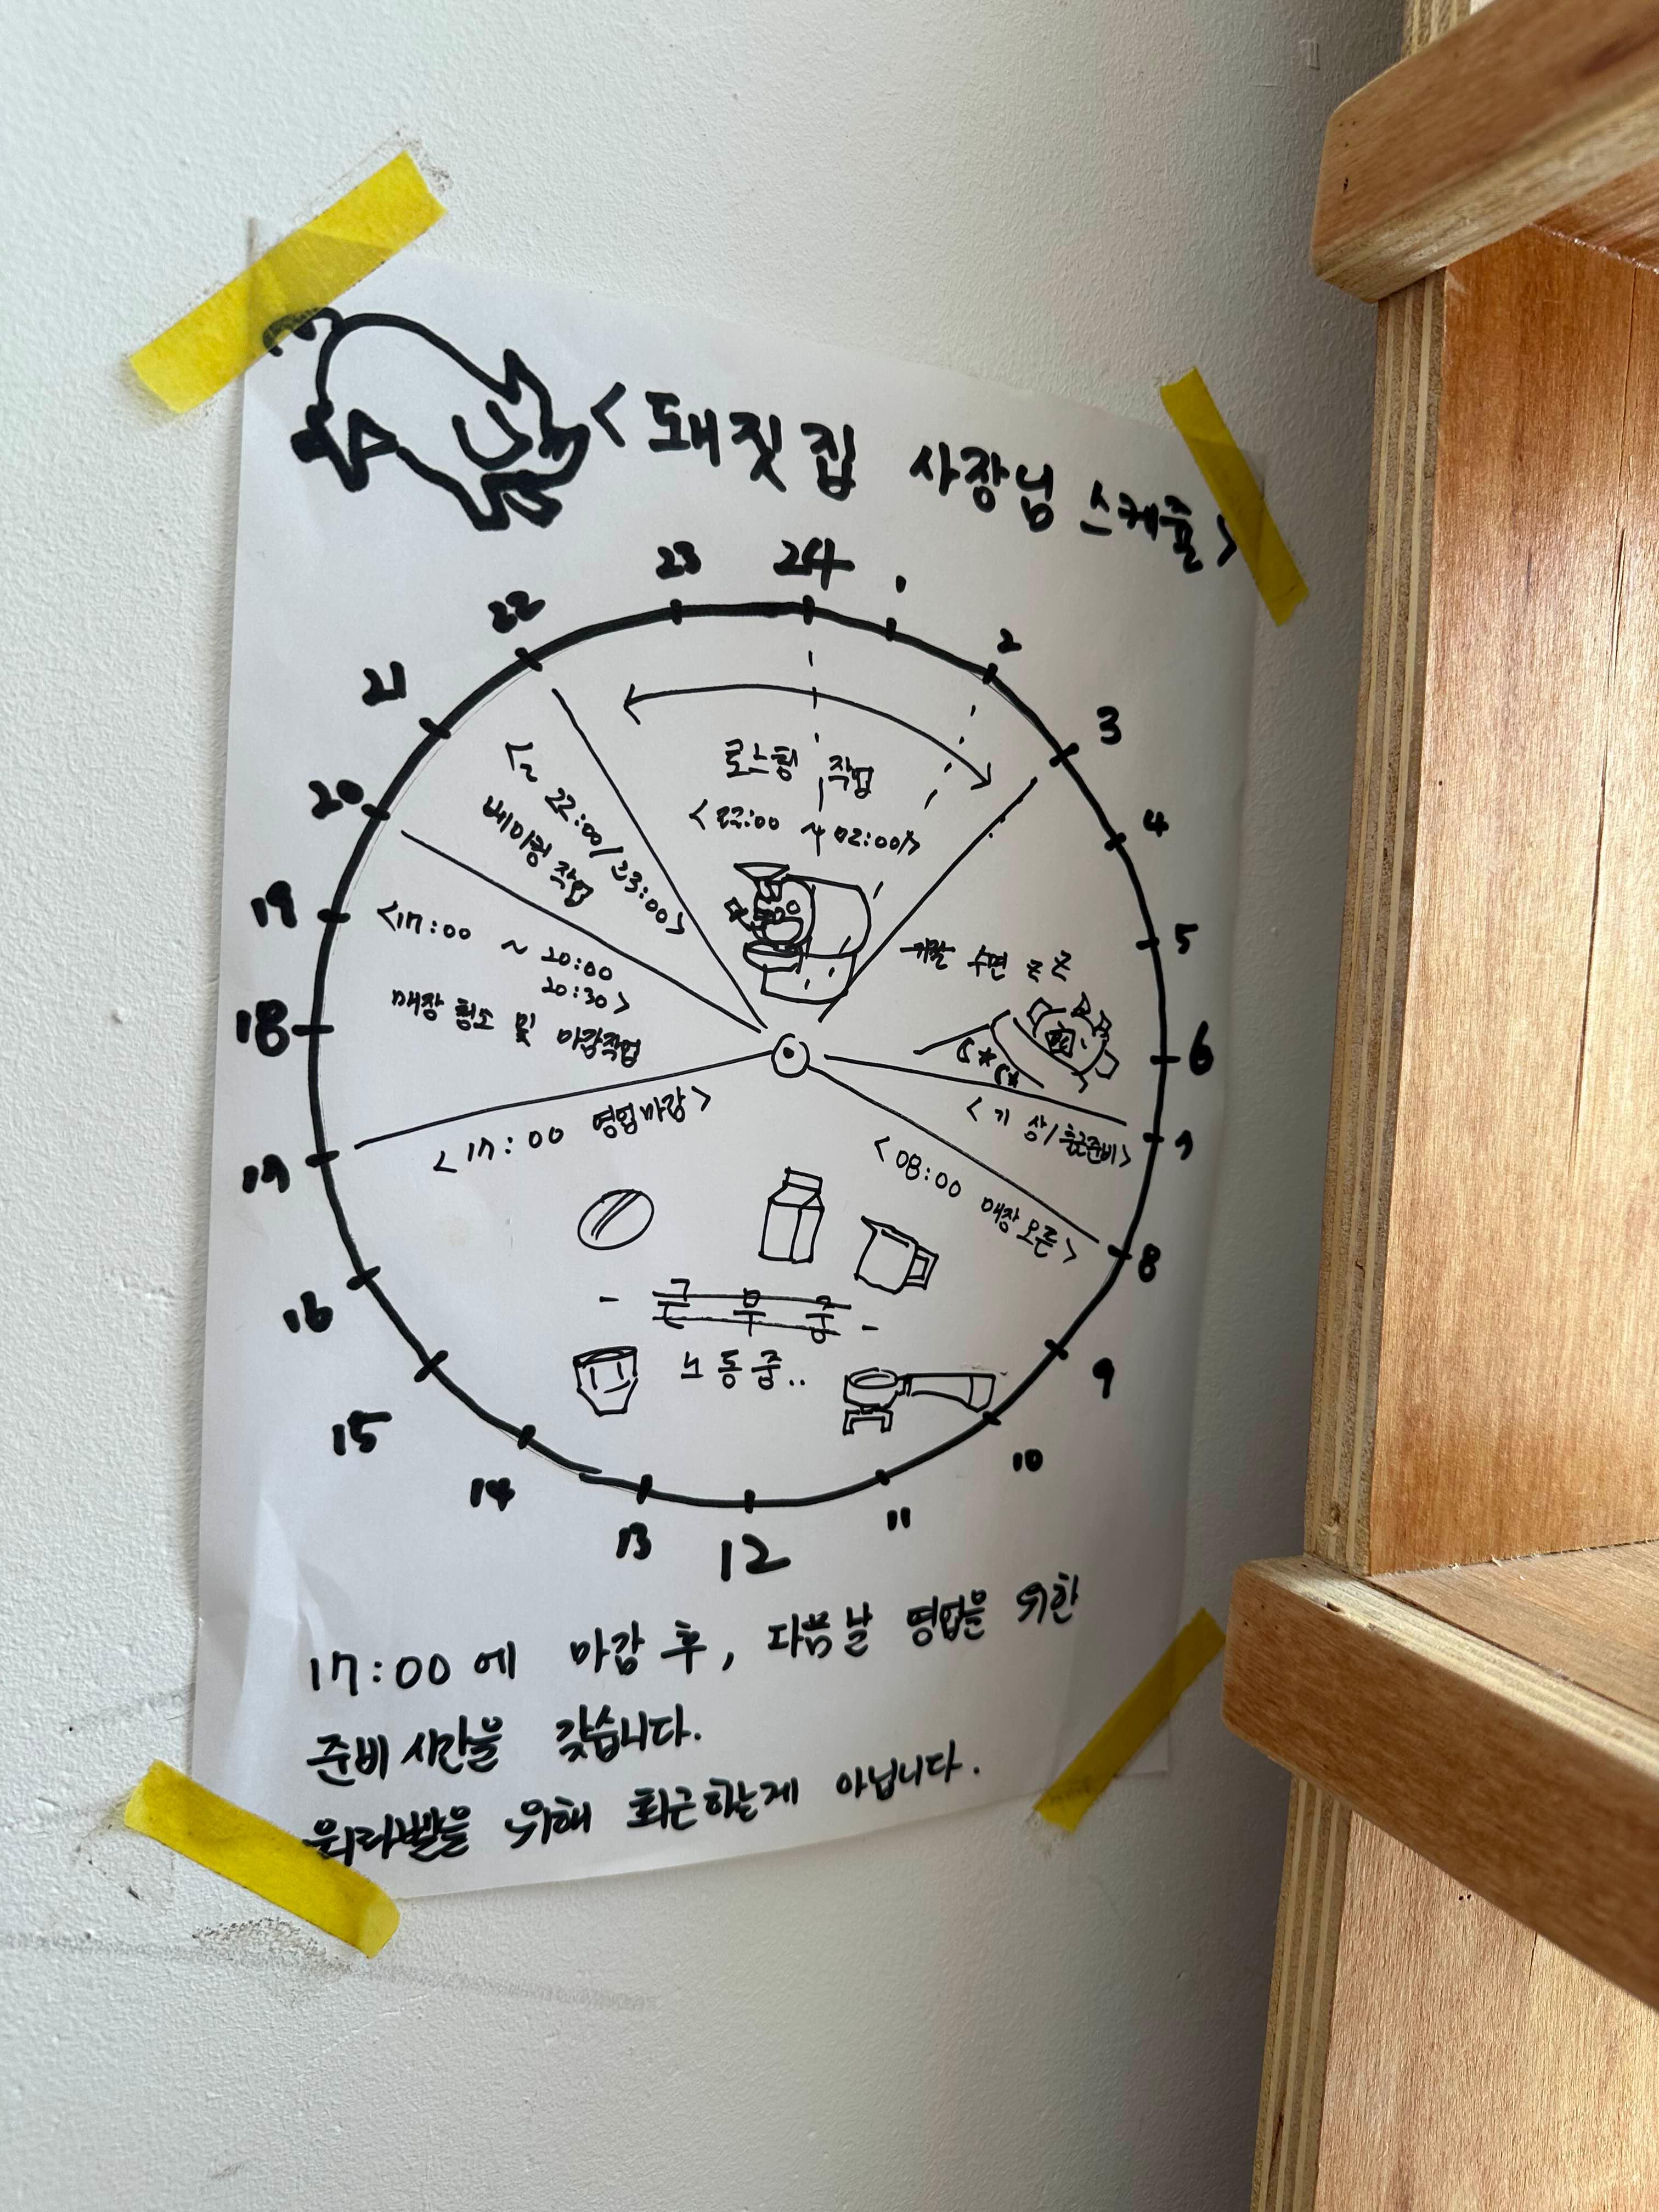 < 돼짓집 사장님 스케줄 >
24
1
2
3
4
5
6
7
8
9
10
11
12
13
14
15
16
17
18
19
20
21
22
23
로스팅 작업
< 22:00 ~ 02:00 >
수면 zz
< 기상/출근준비 >
< 08:00 매장오픈 >
- 근무중 -
노동중..
< 17:00 영업마감 >
<17:00 ~ 20:00
20:30 >
매장 청소 및 마감작업
22:00/23:00>
베이킹 작업
17:00에 마감 후, 다음날 영업을 위한
준비시간을 갖습니다.
워라벨을 위해 퇴근하는게 아닙니다.